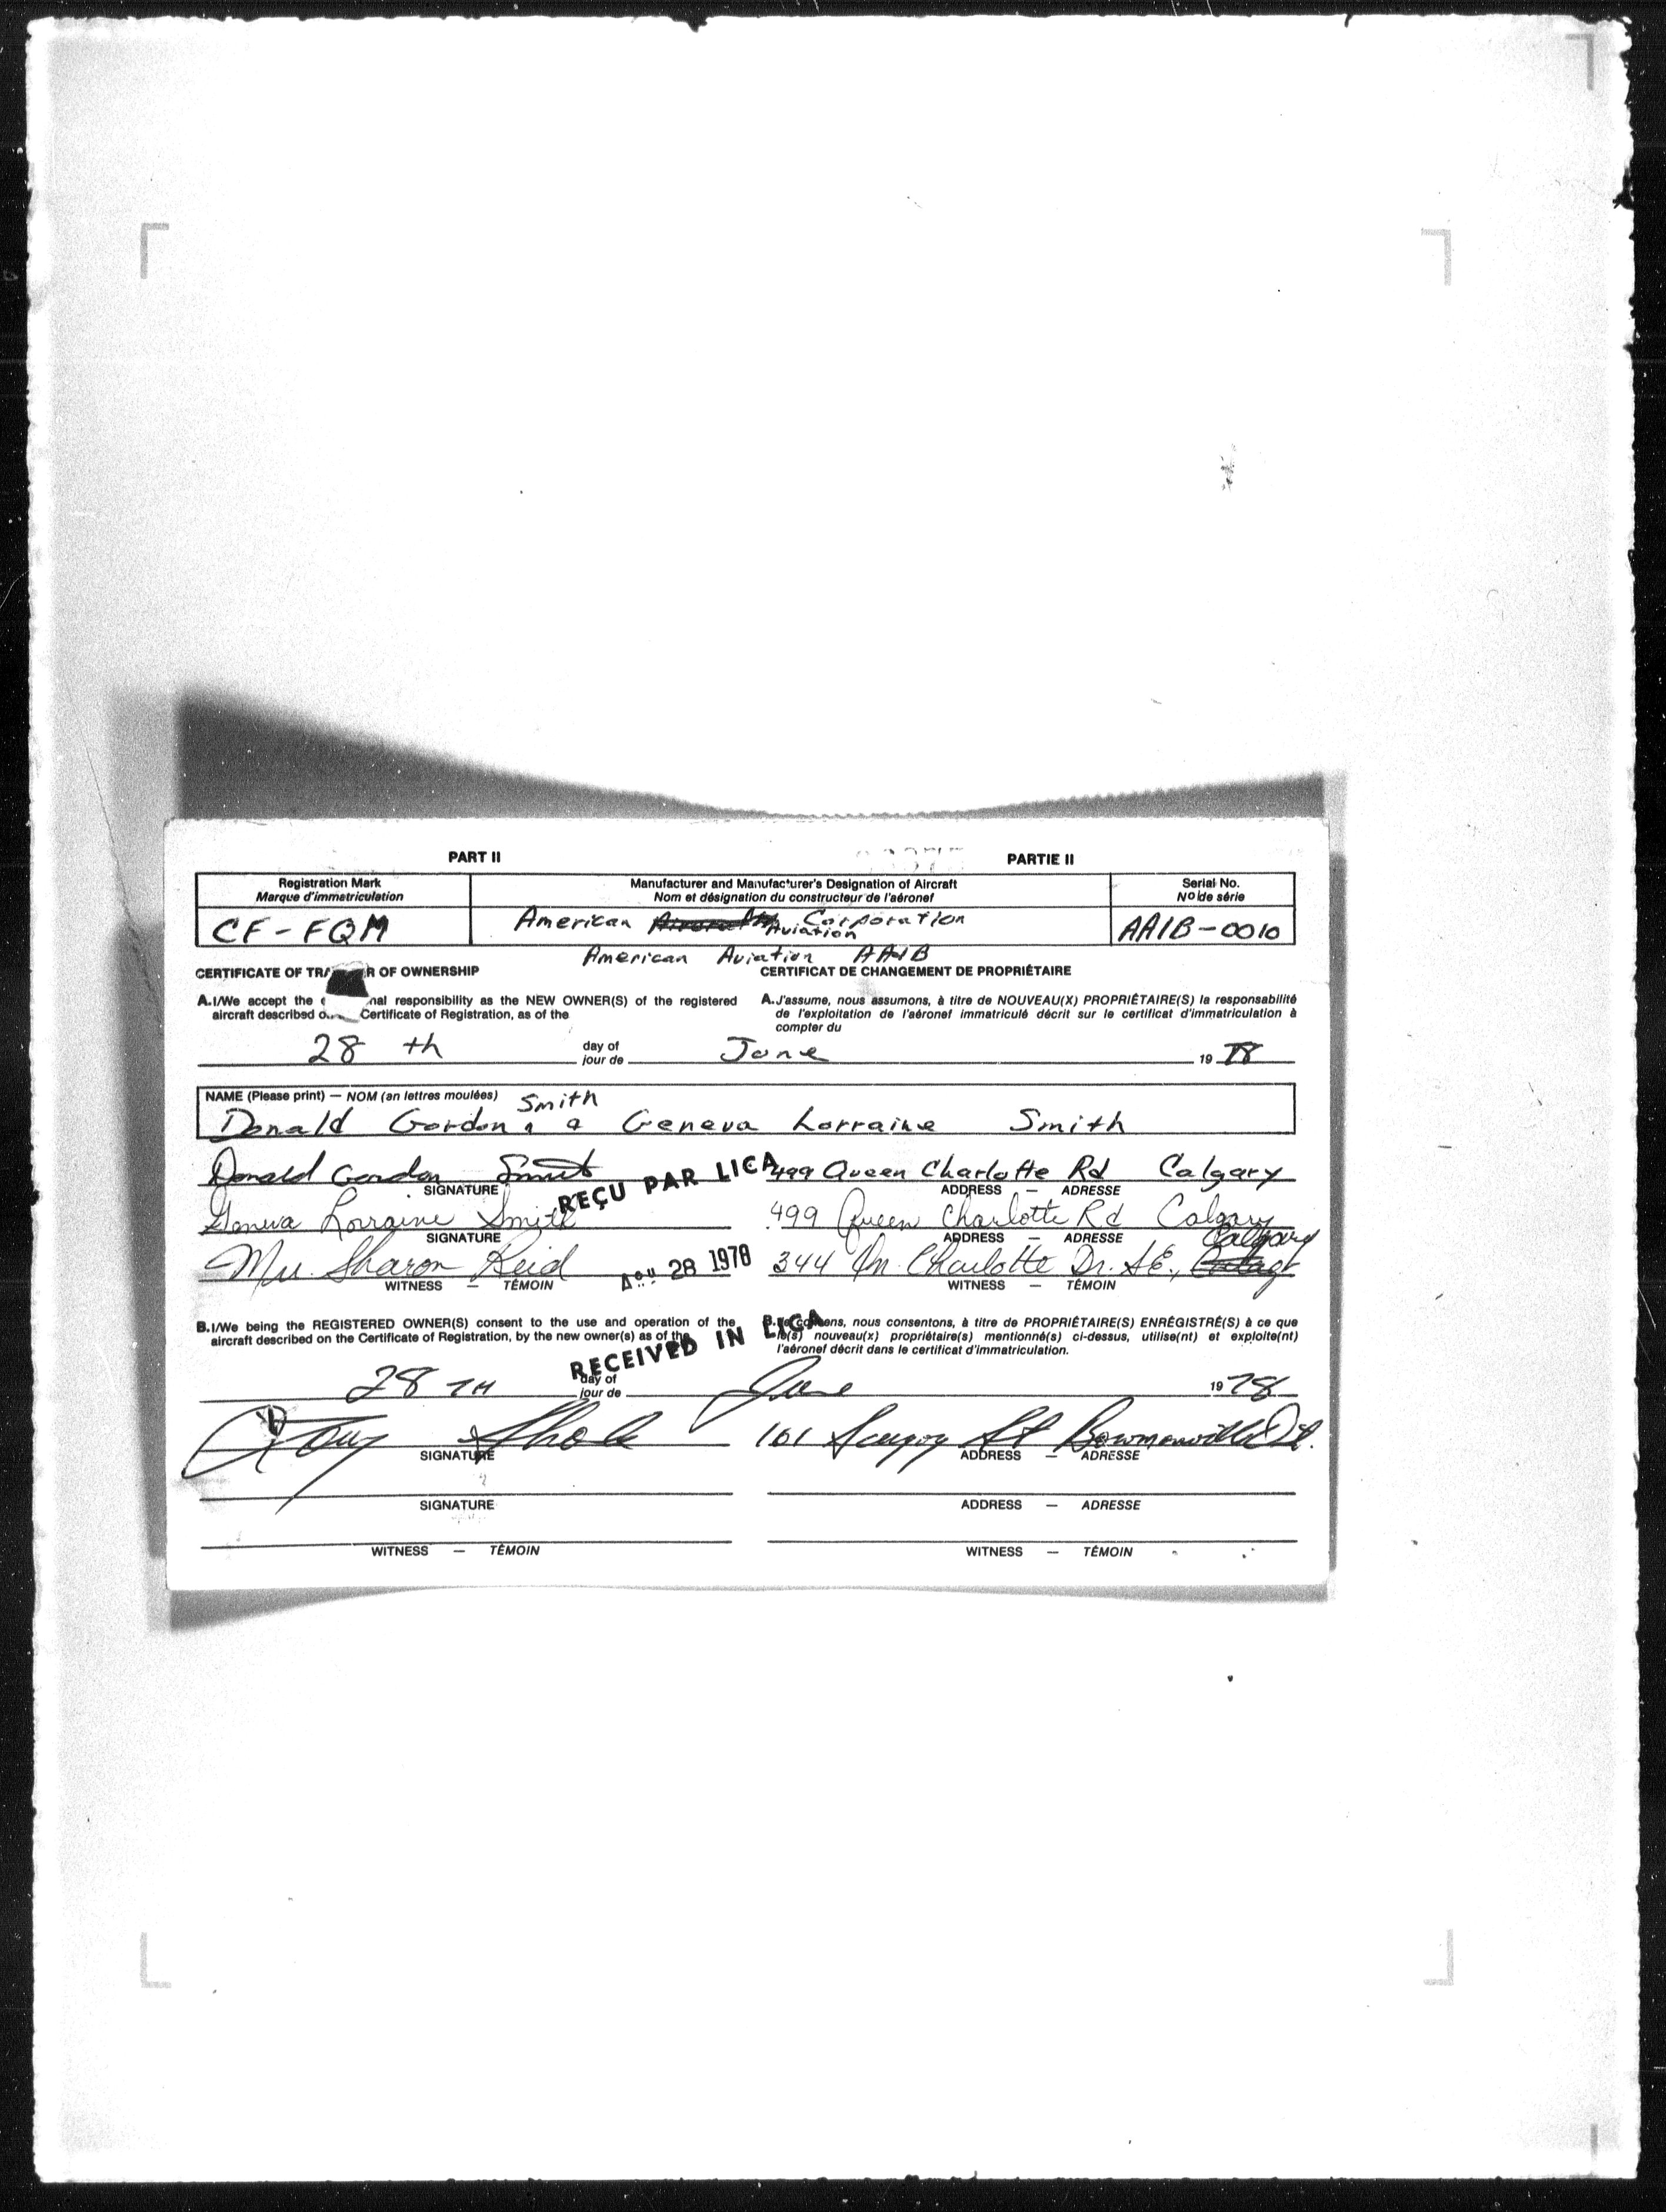 PART II PARTIE II
Registration Mark Manufacturer and Manufacturer's Designation of Aircraft Serial No.
Marque d'immatriculation Nom et désignation du constructeur de l'aéronef Nº de série
CF-FQM American Aviation Corporation AA1B-0010
American Aviation AA1B
CERTIFICATE OF TRA R OF OWNERSHIP CERTIFICAT DE CHANGEMENT DE PROPRIÉTAIRE
A. I/We accept the nal responsibility as the NEW OWNER(S) of the registered
aircraft described Certificate of Registration, as of the
A. J'assume, nous assumons, à titre de NOUVEAU(X) PROPRIÉTAIRE(S) la responsabilité
de l'exploitation de l'aéronef immatriculé décrit sur le certificat d'immatriculation à
compter du
28 th day of June 19 78
jour de
NAME (Please print) — NOM (an lettres moulées) Smith
Donald Gordon Geneva Lorraine Smith
Donald Gordon Smith 499 Queen Charlotte Rd Calgary
SIGNATURE ADDRESS — ADRESSE
REÇU PAR LICA
Geneva Lorraine Smith 499 Queen Charlotte Rd Calgary
SIGNATURE ADDRESS — ADRESSE
Calgary
Mrs. Sharon Reid 344 Qn. Charlotte Dr. SE.,
28 1978
WITNESS — TÉMOIN WITNESS — TÉMOIN
B. I/We being the REGISTERED OWNER(S) consent to the use and operation of the
aircraft described on the Certificate of Registration, by the new owner(s) as of the
nous consentons, à titre de PROPRIÉTAIRE(S) ENRÉGISTRÉ(S) à ce que
nouveau(x) propriétaire(s) mentionné(s) ci-dessus, utilise(nt) et exploite(nt)
l'aéronef décrit dans le certificat d'immatriculation.
RECEIVED IN LICA
28 TH day of June 19 78
jour de
101 St Bowmanville
SIGNATURE ADDRESS — ADRESSE
SIGNATURE ADDRESS — ADRESSE
WITNESS — TÉMOIN WITNESS — TÉMOIN